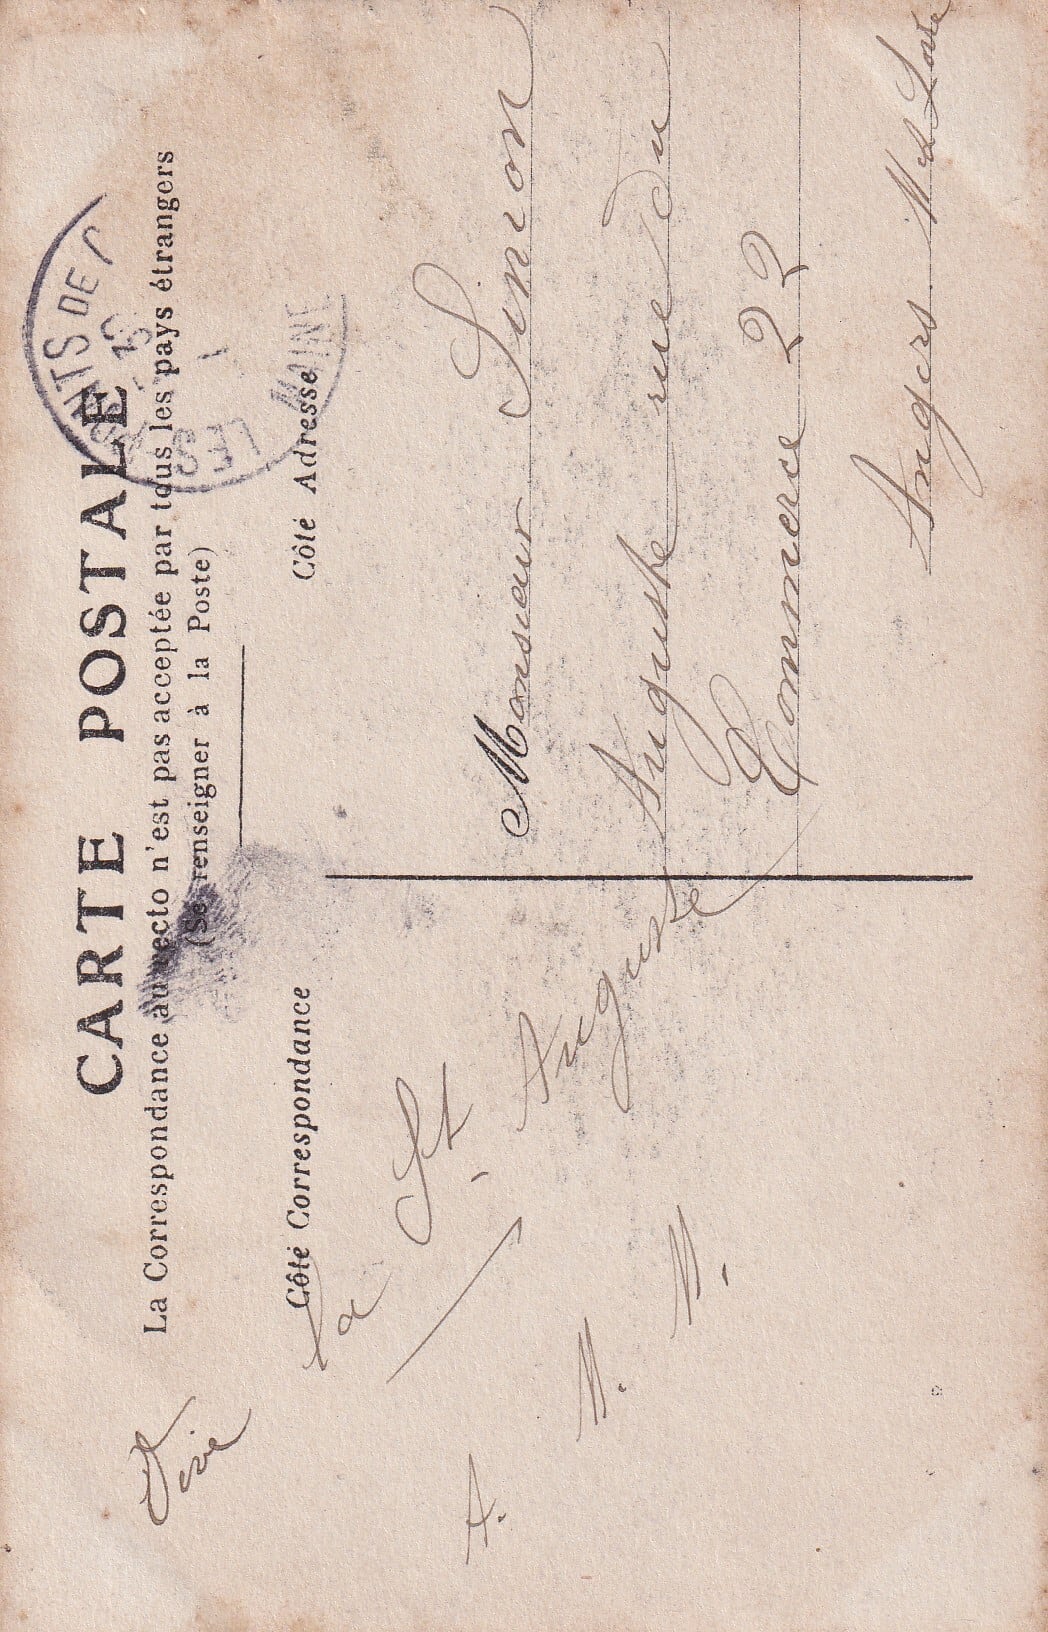 CARTE POSTALE
La Correspondance au recto n'est pas acceptée par tous les pays étrangers
(Se renseigner à la Poste)
Côté Correspondance
Vive
la
St
Auguste
A. M. M.
Côté Adresse
Monsieur Simon
Auguste rue du
Commerce 22
Angers
LES
DE
MAINE